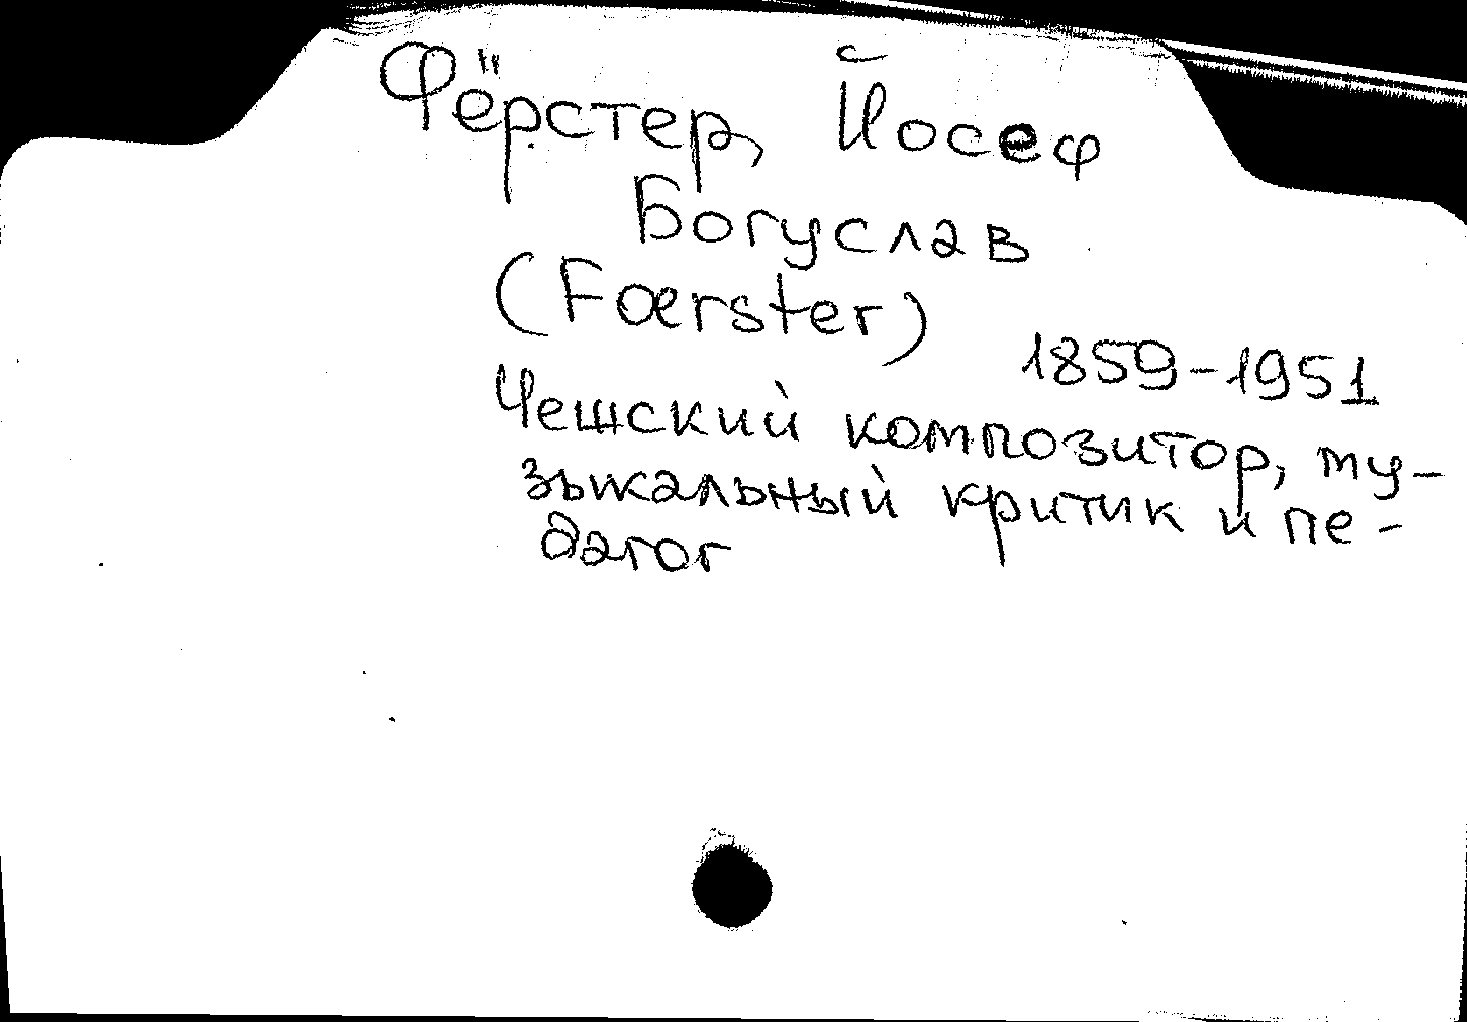 Фёрстер, Йосеф
Богуслав
(Fœrster)
1859-1951
Чешский композитор, му-
зыкальный критик и пе-
дагог